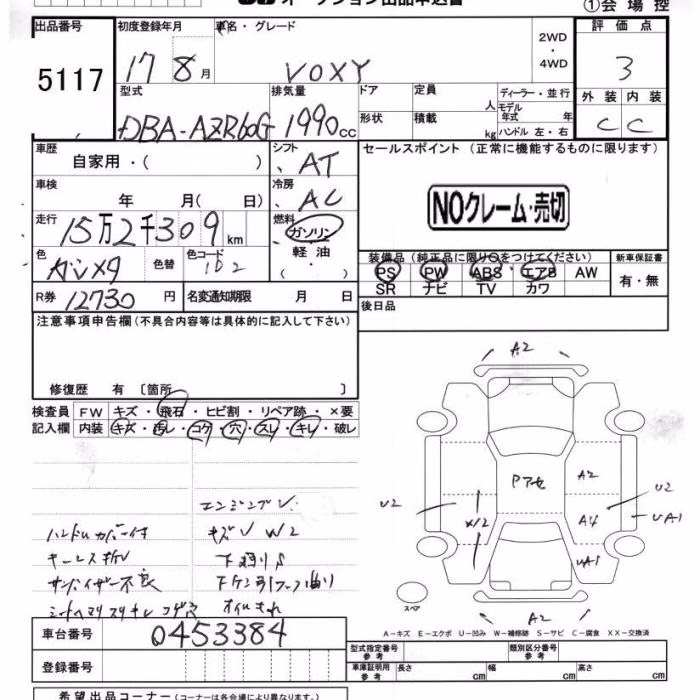 オークション出品申込書
①会場控
出品番号
5117
初度登録年月
17 8月
車名・グレード
VOXY
2WD
・
4WD
評価点
3
型式
DBA-AZR60G
排気量
1990 CC
ドア
形状
定員
人
積載
kg
ディーラー・並行
モデル
年式 年
ハンドル 左・右
外装 内装
C C
車歴
自家用・( )
シフト
AT
セールスポイント (正常に機能するものに限ります)
NOクレーム・売切
車検
年 月( 日)
冷房
AC
走行
15万2千309 km
燃料
ガソリン
軽油
色
ガンメタ
色替
色コード
1D2
装備品 (純正品に限り○をつけてください)
PS PW ABS エアB AW
SR ナビ TV カワ
新車保証書
有・無
R券 12730 円
名変通知期限 月 日
後日品
注意事項申告欄 (不具合内容等は具体的に記入して下さい)
修復歴 有 [箇所 ]
検査員 FW キズ・飛石・ヒビ割・リペア跡・×要
記入欄 内装 キズ・汚レ・コゲ・穴・スレ・キレ・破レ
エンジンブレ
ハンドルカバー付
キズレ W2
キーレス折レ
下廻りS
サンバイザー不良
オイルもれ
A2
Pアセ
A2
U2
U2
X/2
A4
UA1
UA1
A2
スペア
A-キズ E-エクボ U-凹み W-補修跡 S-サビ C-腐食 XX-交換済
車台番号
0453384
登録番号
型式指定番号
参考
類別区分番号
参考
車庫証明用
参考
長さ cm
幅 cm
高さ cm
希望出品コーナー (コーナーは各会場により異なります。)